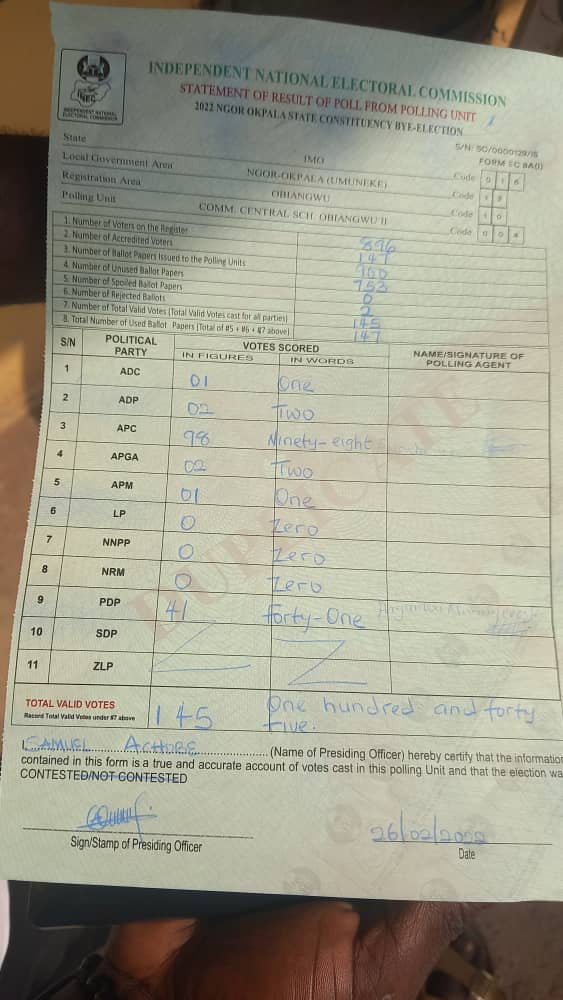 INEC
INDEPENDENT NATIONAL ELECTORAL COMMISSION
INDEPENDENT NATIONAL ELECTORAL COMMISSION
STATEMENT OF RESULT OF POLL FROM POLLING UNIT
2022 NGOR OKPALA STATE CONSTITUENCY BYE-ELECTION
S/N: SC/0000129/15
FORM EC 8A(I)
State IMO Code 0 1 6
Local Government Area NGOR-OKPALA (UMUNEKE) Code 1 3
Registration Area OBIANGWU Code 1 0
Polling Unit COMM. CENTRAL SCH. OBIANGWU II Code 0 0 4
1. Number of Voters on the Register 896
2. Number of Accredited Voters 147
3. Number of Ballot Papers Issued to the Polling Units 900
4. Number of Unused Ballot Papers 753
5. Number of Spoiled Ballot Papers 0
6. Number of Rejected Ballots 2
7. Number of Total Valid Votes (Total Valid Votes cast for all parties) 145
8. Total Number of Used Ballot Papers (Total of #5 + #6 + #7 above) 147
S/N POLITICAL PARTY VOTES SCORED NAME/SIGNATURE OF POLLING AGENT
IN FIGURES IN WORDS
1 ADC 01 One
2 ADP 02 Two
3 APC 98 Ninety-eight
4 APGA 02 Two
5 APM 01 One
6 LP 0 Zero
7 NNPP 0 Zero
8 NRM 0 Zero
9 PDP 41 Forty-One
10 SDP
11 ZLP
DUPLICATE
TOTAL VALID VOTES 145 One hundred and forty
Record Total Valid Votes under #7 above five.
I, SAMUEL (Name of Presiding Officer) hereby certify that the information
contained in this form is a true and accurate account of votes cast in this polling Unit and that the election wa
CONTESTED/NOT CONTESTED
26/02/2022
Sign/Stamp of Presiding Officer Date